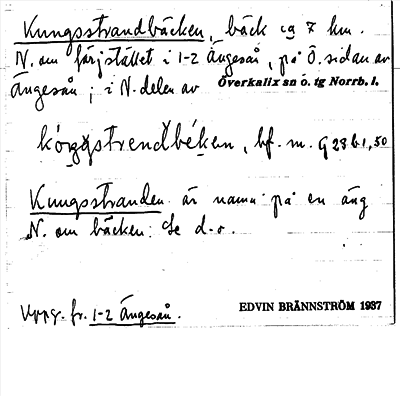 Kungsstrandbäcken, bäck cg 7 km.
N. om färjstället i 1-2 Ängeså, på Ö. sidan av
Ängesån; i N. delen av Överkalix sn ö. tg Norrb. l.
bf. m. G 28 b 1,50
Kungsstranden är namn på en äng
N. om bäcken. Se d. o.
Uppg. fr. 1-2 Ängeså.
EDVIN BRÄNNSTRÖM 1937